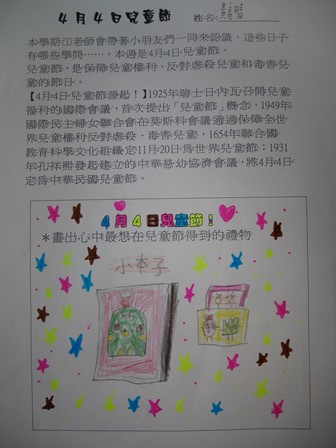 4月4日兒童節 姓名:
本學期江老師會帶著小朋友們一同來認識，這些日子
有哪些學問……，本週是4月4日兒童節。
兒童節，是保障兒童權利，反對虐殺兒童和毒害兒童
的節日。
【4月4日兒童節源起！】1925年瑞士日內瓦召開兒童
福利的國際會議，首次提出「兒童節」概念，1949年
國際民主婦女聯合會在莫斯科會議通過保障全世
界兒童權利反對虐殺、毒害兒童，1654年聯合國
教育科學文化組織定11月20日為世界兒童節；1931
年孔祥熙發起建立的中華慈幼協濟會議，將4月4日
定為中華民國兒童節。
4月4日兒童節！
＊畫出心中最想在兒童節得到的禮物
小本子